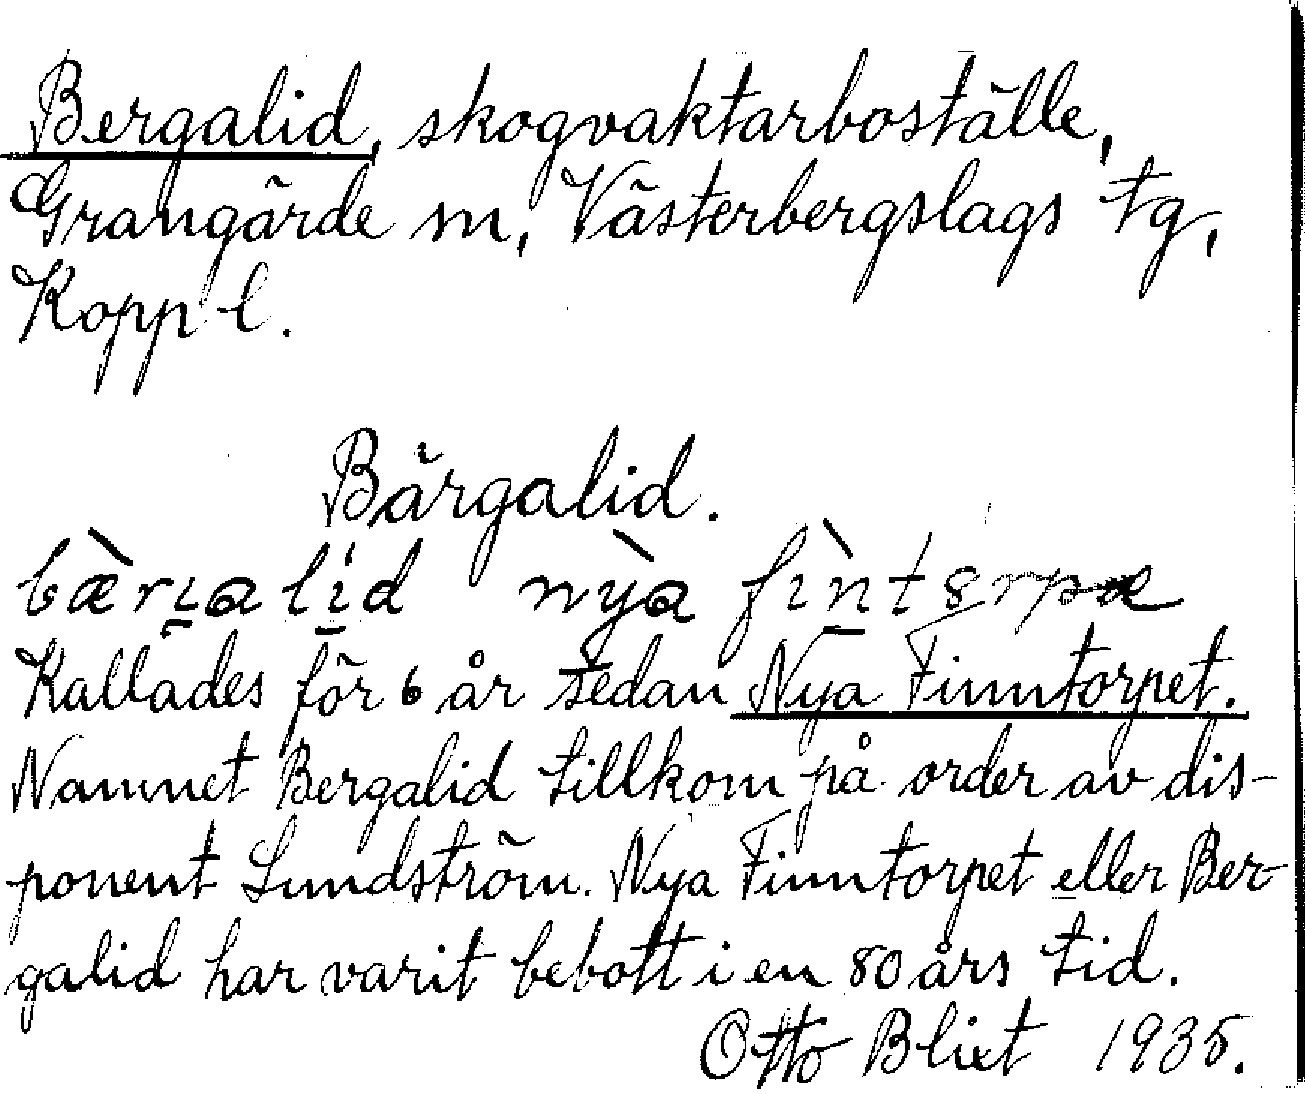 Bergalid, skogvaktarboställe,
Grangärde sn, Västerbergslags tg,
Kopp l.
Bärgalid.
nỳa
Kallades för 6 år sedan Nya Finntorpet.
Namnet Bergalid tillkom på order av dis-
ponent Lundström. Nya Finntorpet eller Ber-
galid har varit bebott i en 80 års tid.
Otto Blixt 1935.